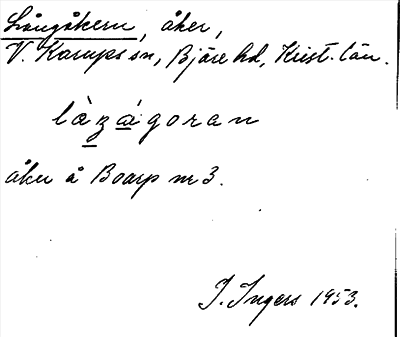 Långåkern, åker,
V. Karups sn, Bjäre hd, Krist. län.
làzágoran
åker å Boarp nr 3.
I. Ingers 1953.